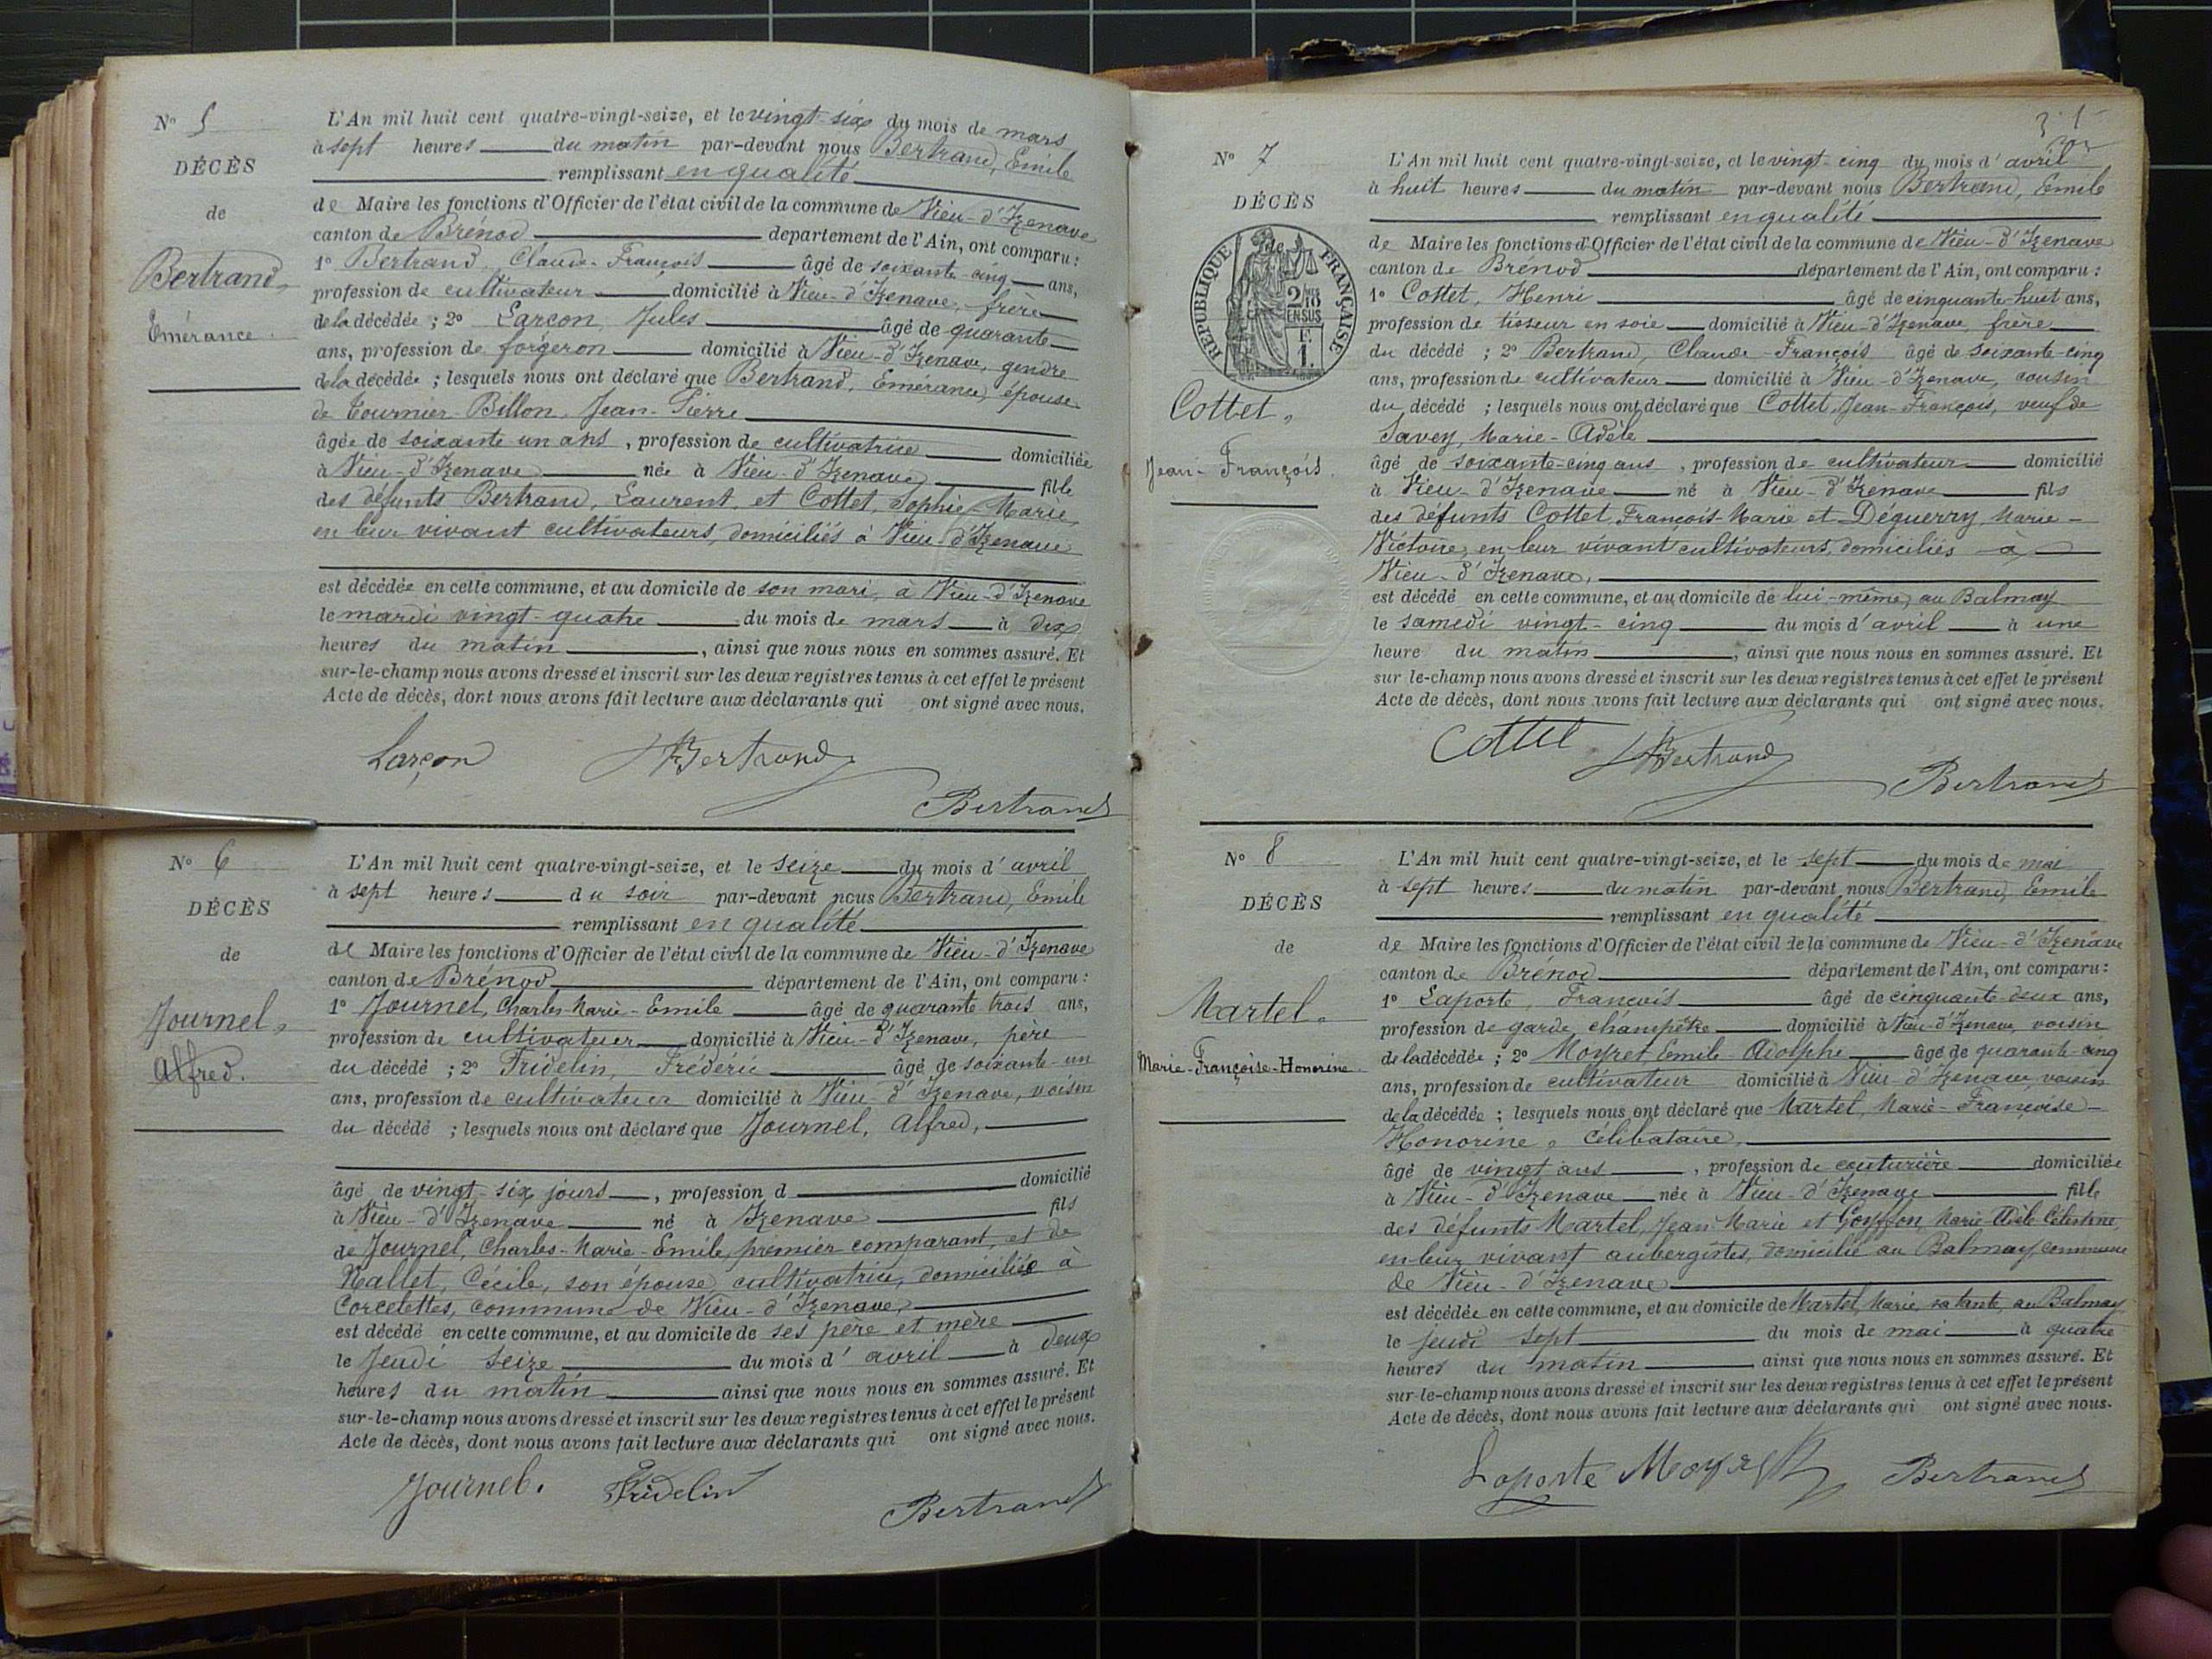 N° 5
DÉCÈS
de
Bertrand,
Emérance.
L'An mil huit cent quatre-vingt-seize, et le vingt-six du mois de mars
à sept heures du matin par-devant nous Bertrand, Emile
remplissant en qualité
de Maire les fonctions d'Officier de l'état civil de la commune de Vieu-d'Izenave
canton de Brénod département de l'Ain, ont comparu :
1° Bertrand, Claude-François âgé de soixante-cinq ans,
profession de cultivateur domicilié à Vieu-d'Izenave, frère
de la décédée ; 2° Larçon, Jules âgé de quarante
ans, profession de forgeron domicilié à Vieu-d'Izenave, gendre
de la décédée ; lesquels nous ont déclaré que Bertrand, Emérance, épouse
de Tournier-Billon, Jean-Pierre
âgée de soixante un ans, profession de cultivatrice domiciliée
à Vieu-d'Izenave née à Vieu-d'Izenave fille
des défunts Bertrand, Laurent, et Cottet, Sophie-Marie,
en leur vivant cultivateurs, domiciliés à Vieu-d'Izenave
est décédée en cette commune, et au domicile de son mari, à Vieu-d'Izenave
le mardi vingt-quatre du mois de mars à dix
heures du matin, ainsi que nous nous en sommes assuré. Et
sur-le-champ nous avons dressé et inscrit sur les deux registres tenus à cet effet le présent
Acte de décès, dont nous avons fait lecture aux déclarants qui ont signé avec nous.
Larçon Bertrand
Bertrand
N° 6
DÉCÈS
de
Journel,
Alfred.
L'An mil huit cent quatre-vingt-seize, et le seize du mois d'avril
à sept heures du soir par-devant nous Bertrand, Emile
remplissant en qualité
de Maire les fonctions d'Officier de l'état civil de la commune de Vieu-d'Izenave
canton de Brénod département de l'Ain, ont comparu :
1° Journel, Charles-Marie-Emile âgé de quarante trois ans,
profession de cultivateur domicilié à Vieu-d'Izenave, père
du décédé ; 2° Fridelin, Frédéric âgé de soixante-un
ans, profession de cultivateur domicilié à Vieu-d'Izenave, voisin
du décédé ; lesquels nous ont déclaré que Journel, Alfred,
âgé de vingt-six jours, profession d domicilié
à Vieu-d'Izenave né à Izenave fils
de Journel, Charles-Marie-Emile, premier comparant, et de
Mallet, Cécile, son épouse, cultivatrice, domiciliée à
Corcelettes, commune de Vieu-d'Izenave,
est décédé en cette commune, et au domicile de ses père et mère
le jeudi seize du mois d'avril à deux
heures du matin ainsi que nous nous en sommes assuré. Et
sur-le-champ nous avons dressé et inscrit sur les deux registres tenus à cet effet le présent
Acte de décès, dont nous avons fait lecture aux déclarants qui ont signé avec nous.
Journel. Fridelin
Bertrand
N° 7
DÉCÈS
de
RÉPUBLIQUE FRANÇAISE
2/10 EN SUS
F. 1.
Cottet,
Jean-François.
L'An mil huit cent quatre-vingt-seize, et le vingt-cinq du mois d'avril
à huit heures du matin par-devant nous Bertrand, Emile
remplissant en qualité
de Maire les fonctions d'Officier de l'état civil de la commune de Vieu-d'Izenave
canton de Brénod département de l'Ain, ont comparu :
1° Cottet, Henri âgé de cinquante-huit ans,
profession de tisseur en soie domicilié à Vieu-d'Izenave, frère
du décédé ; 2° Bertrand, Claude-François âgé de soixante-cinq
ans, profession de cultivateur domicilié à Vieu-d'Izenave, cousin
du décédé ; lesquels nous ont déclaré que Cottet, Jean-François, veuf de
Savey, Marie-Adèle
âgé de soixante-cinq ans, profession de cultivateur domicilié
à Vieu-d'Izenave né à Vieu-d'Izenave fils
des défunts Cottet, François-Marie et Déguerry, Marie-
Victoire, en leur vivant cultivateurs, domiciliés à
Vieu-d'Izenave,
est décédé en cette commune, et au domicile de lui-même, au Balmay
le samedi vingt-cinq du mois d'avril à une
heure du matin, ainsi que nous nous en sommes assuré. Et
sur-le-champ nous avons dressé et inscrit sur les deux registres tenus à cet effet le présent
Acte de décès, dont nous avons fait lecture aux déclarants qui ont signé avec nous.
Cottet Bertrand
Bertrand
N° 8
DÉCÈS
de
Martel.
Marie-Françoise-Honorine.
L'An mil huit cent quatre-vingt-seize, et le sept du mois de mai
à sept heures du matin par-devant nous Bertrand, Emile
remplissant en qualité
de Maire les fonctions d'Officier de l'état civil de la commune de Vieu-d'Izenave
canton de Brénod département de l'Ain, ont comparu :
1° Laporte, François âgé de cinquante-deux ans,
profession de garde champêtre domicilié à Vieu-d'Izenave, voisin
de la décédée ; 2° Moyret Emile-Adolphe âgé de quarante-cinq
ans, profession de cultivateur domicilié à Vieu-d'Izenave, voisin
de la décédée ; lesquels nous ont déclaré que Martel, Marie-Françoise-
Honorine, célibataire,
âgé de vingt ans, profession de couturière domiciliée
à Vieu-d'Izenave née à Vieu-d'Izenave fille
des défunts Martel, Jean Marie et Goyffon, Marie-Adèle Célestine
en leur vivant aubergistes, domicilié au Balmay, commune
de Vieu-d'Izenave
est décédée en cette commune, et au domicile de Martel, Marie, sa tante, au Balmay
le jeudi sept du mois de mai à quatre
heures du matin ainsi que nous nous en sommes assuré. Et
sur-le-champ nous avons dressé et inscrit sur les deux registres tenus à cet effet le présent
Acte de décès, dont nous avons fait lecture aux déclarants qui ont signé avec nous.
Laporte Moyret Bertrand